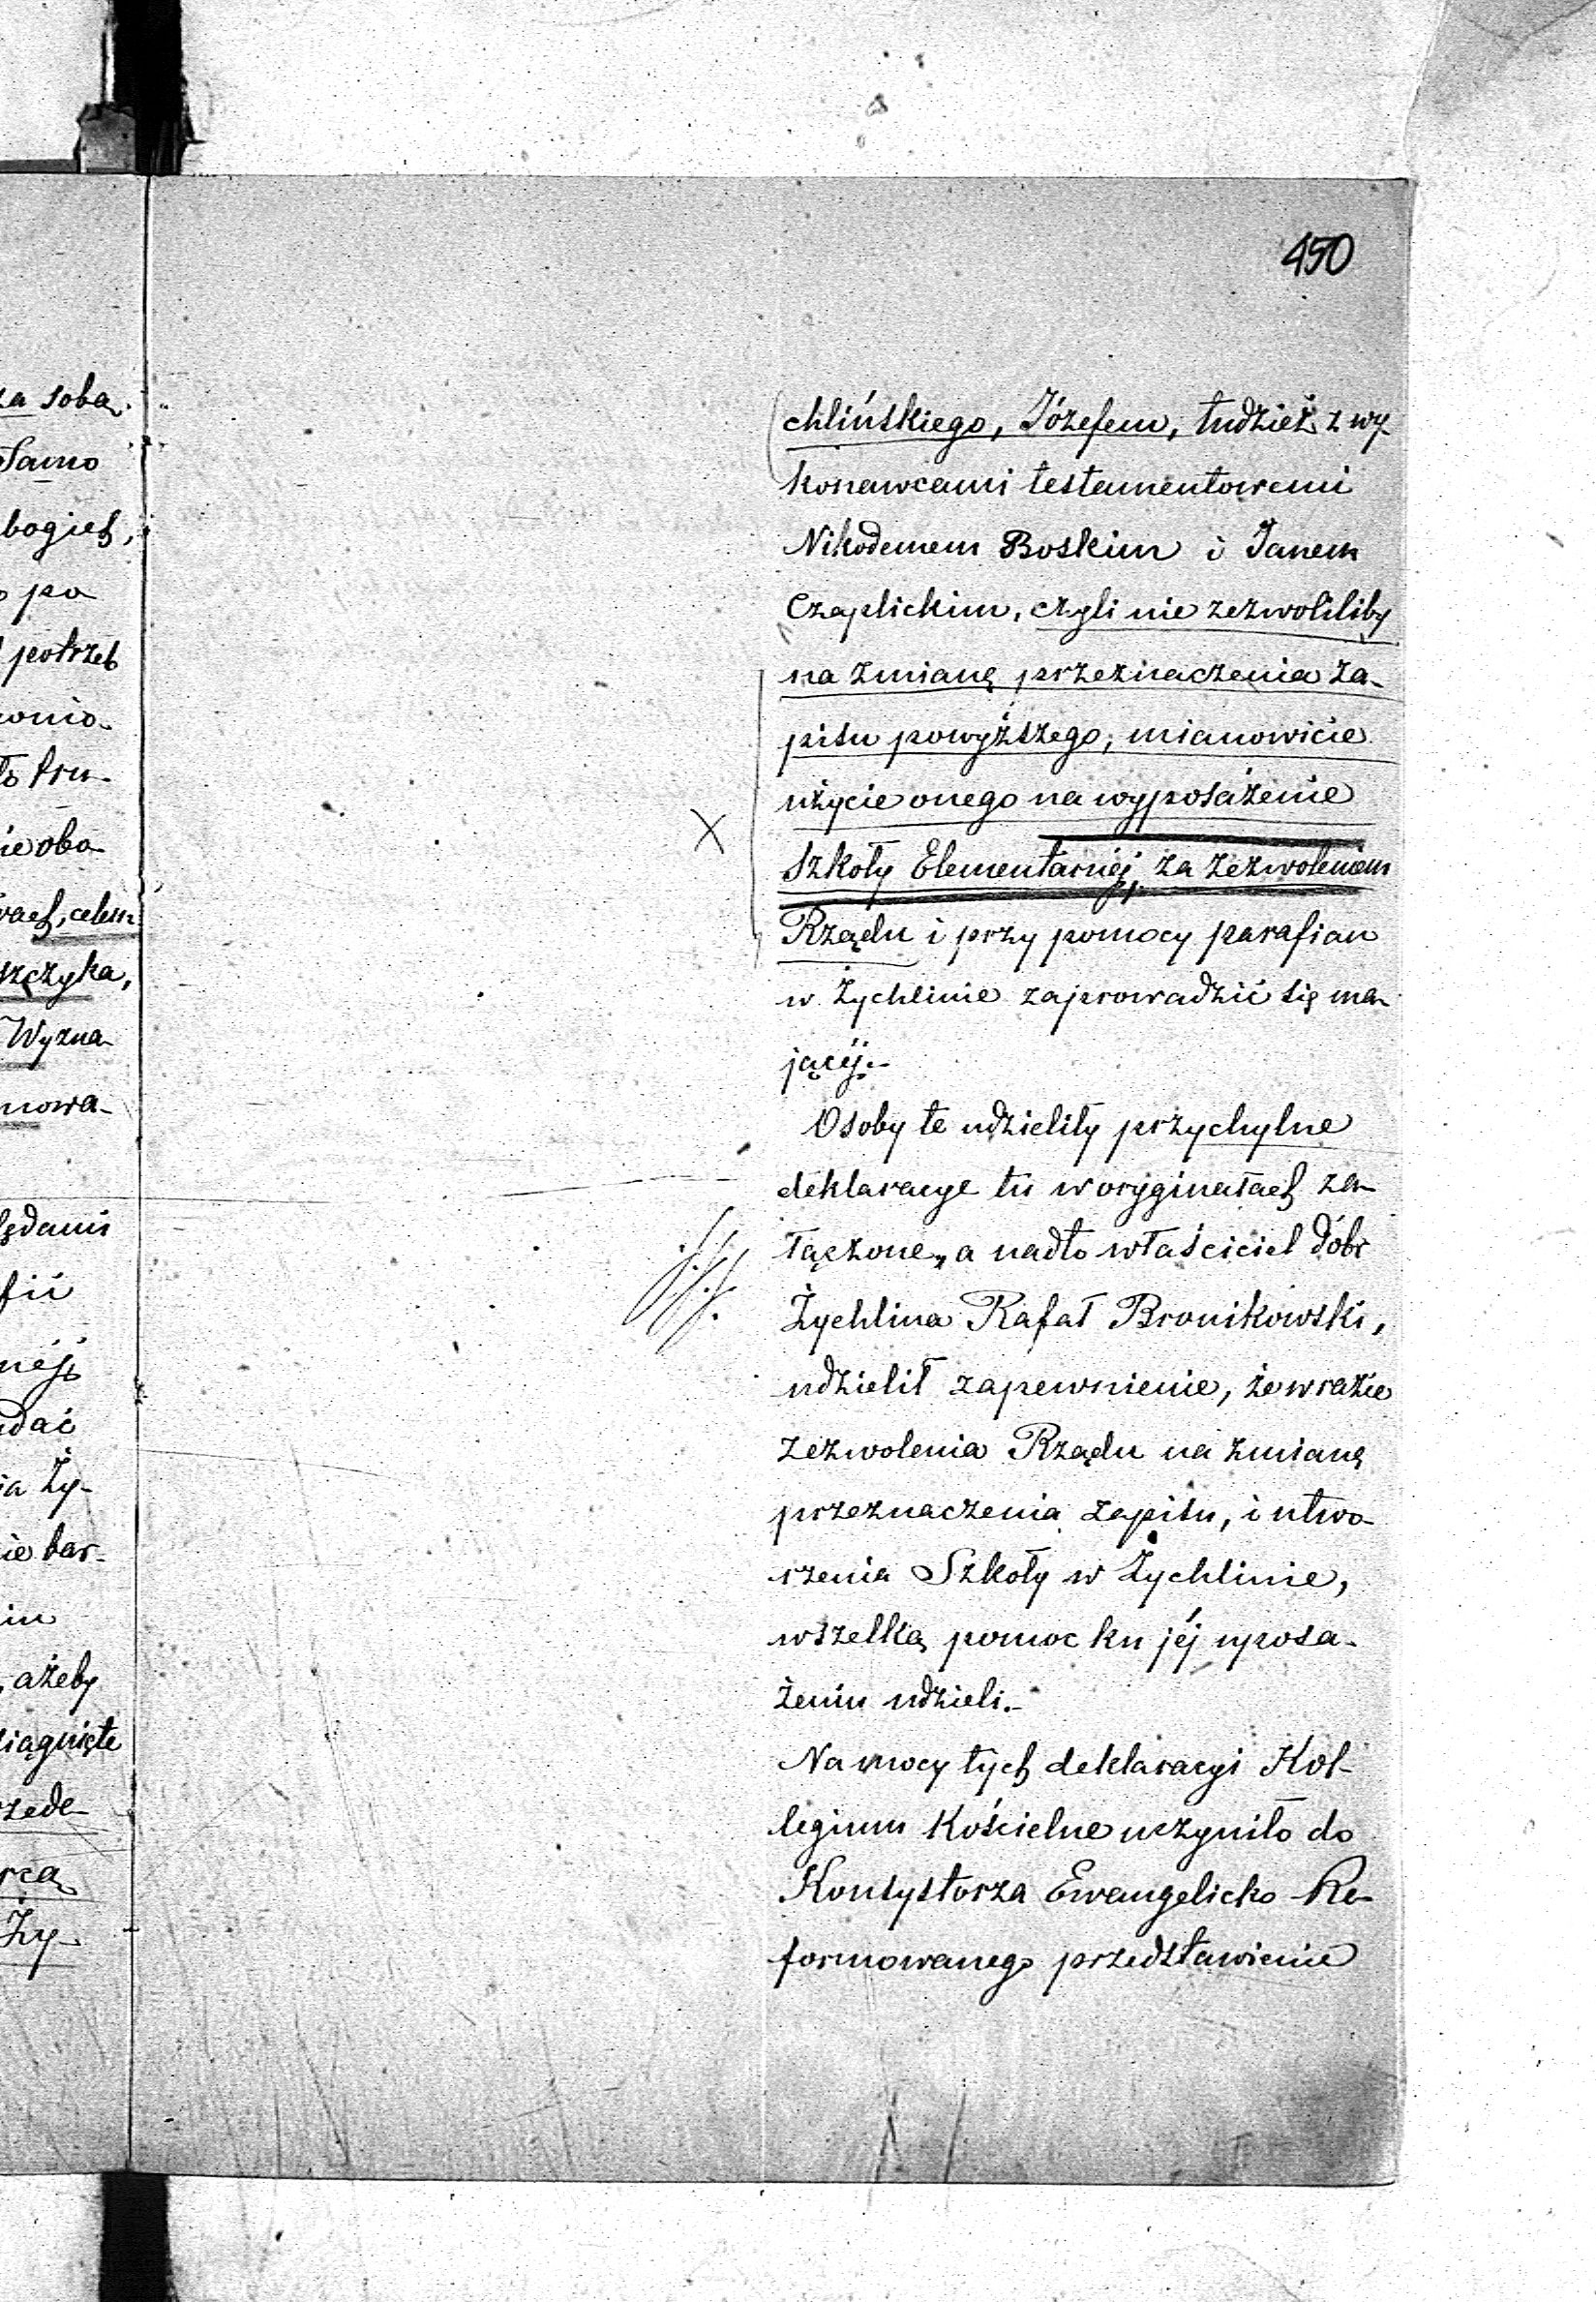 450
za sobą
Samo
bogich,
po
potrzeb
ie oba-
wach, celem
szczyka,
Wyzna-
mowa-
fii
nej
udać
ia Ży-
ie bar-
, ażeby
siągnięte
rzede-
rcą
Ży-
chlińskiego, Józefem, tudzież z wy-
konawcami testamentowemi
Nikodemem Boskim i Janem
Czaplickim, czyli nie zezwoliliby
na zmianę przeznaczenia za-
pisu powyższego, mianowicie
użycie onego na wyposażenie
Szkoły Elementarnej, za zezwoleniem
Rządu i przy pomocy parafian
w Żychlinie zaprowadzić się ma-
jącej.-
Osoby te udzieliły przychylne
deklaracye tu w oryginałach za-
łączone, a nadto właściciel dóbr
Żychlina Rafał Bronikowski,
udzielił zapewnienie, że w razie
zezwolenia Rządu na zmianę
przeznaczenia zapisu, i utwo-
rzenia Szkoły w Żychlinie,
wszelką pomoc ku jéj uposa-
żeniu udzieli.-
Na mocy tych deklaracyi Kol-
legium Kościelne uczyniło do
Konsystorza Ewangelicko-Re-
formowanego przedstawienie